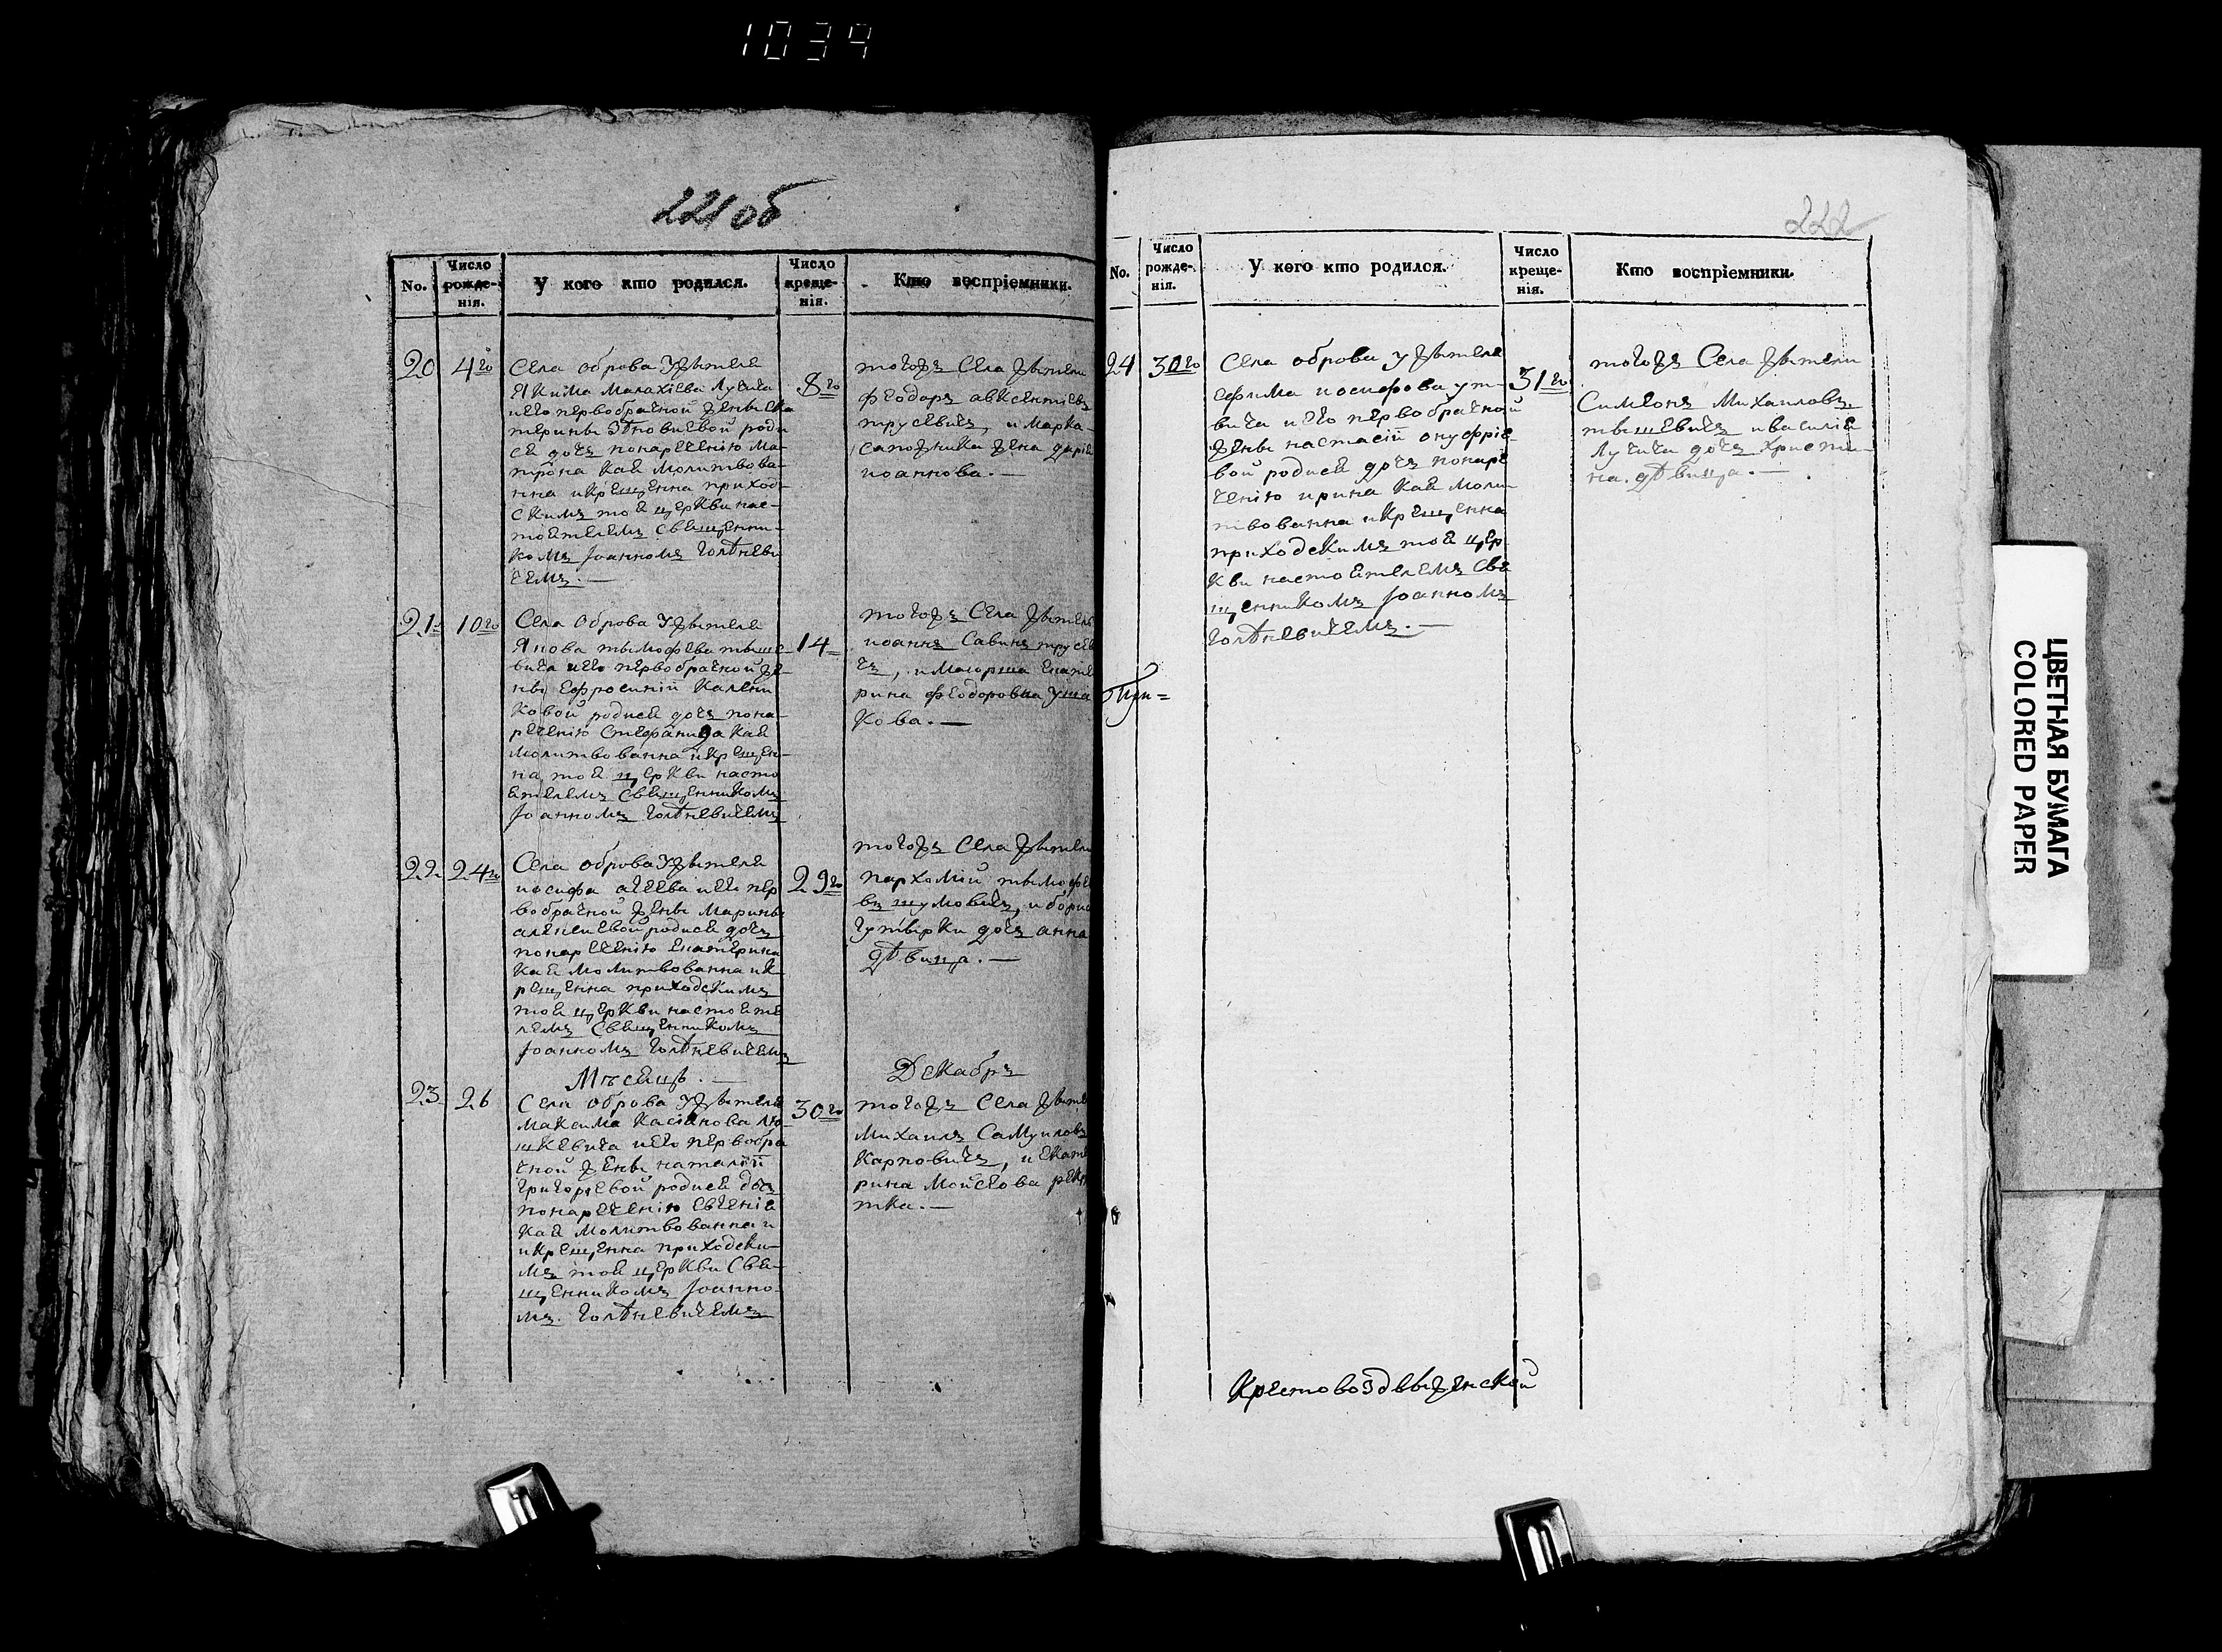 1034
221 об
No.
Число рожде- нія.
У кого кто родился.
Число креще- нія.
Кто воспріемники.
20
4го
Села оброва У жытеля
Якима Малахіева Лучица
и его первобрачной жены Ека
терины Зѣновиевой роди
ся дочъ понаречению Ма-
трона кая Молитвова-
нна и крещенна приход-
скимъ тоя церкви нас-
тоятелемъ Священни-
комъ Іоанномъ Голѣневи
чемъ. —
8го
тогожъ Села жытели
Феодоръ авксентіевъ
трусевичъ, и Марка
сапожника жена дарія
иоаннова. —
21
10го
Села Оброва У жытеля
Якова тымофева тыше-
вича и его первобрачной же-
ны Ефросиніи Калени
ковой родися дочъ пона-
речению Стефанида кая
Молитвованна и крещен-
на тоя церкви насто
ятелемъ Священникомъ
Іоанномъ Голѣневичемъ
14
тогожъ Села жытель
иоаннъ Савинъ трусев
чъ, и Маіорша Екате
рина Феодоровна Уша
кова. —
22
24го
Села оброва У жытеля
иосифа агеева и его пер
вобрачной жены Марины
алексиевой родися дочъ
понаречению Екатерина
кая Молитвованна и к
рещенна приходскимъ
тоя церкви настояте
лемъ Священникомъ
Іоанномъ Голѣневичемъ
29го
тогожъ Села жытели
пархомій тымофе
въ шумовичъ, и бориса
дочъ анна
дѣвица. —
Мѣсяцъ. —
Декабръ
23
26
Села оброва У жытеля
Максима Касіянова лю-
шкевича и его первобра
чной жены наталіи
григорьевой родися дочъ
понаречению Евгенія
кая Молитвованна и
и крещенна приходски-
мъ тоя церкви Свя-
щенникомъ Іоанно-
мъ. Голѣневичемъ
30го
тогожъ Села жыте
Михаилъ Самуиловъ
Карповичъ, и екате
рина Мойсеова рекру
тка. —
222
No.
Число рожде- нія.
У кого кто родился.
Число креще- нія.
Кто воспріемники.
24
30го
Села оброва У жытеля
ефима иосифова ут-
вича и его первобрачной
жены настасіи онуфріе-
вой родися дочъ понаре
чению ирина кая Моли-
твованна и крещенна
приходскимъ тоя цер
кви настоятелемъ Свя
щенникомъ Іоанномъ
Голѣневичемъ. —
31го
тогожъ Села жытели
Симеонъ Михаиловъ
тышевичъ и василія
Лучица дочъ христи-
на. дѣвица. —
При=
Крестовоздвыженской
ЦВЕТНАЯ БУМАГА
COLORED PAPER